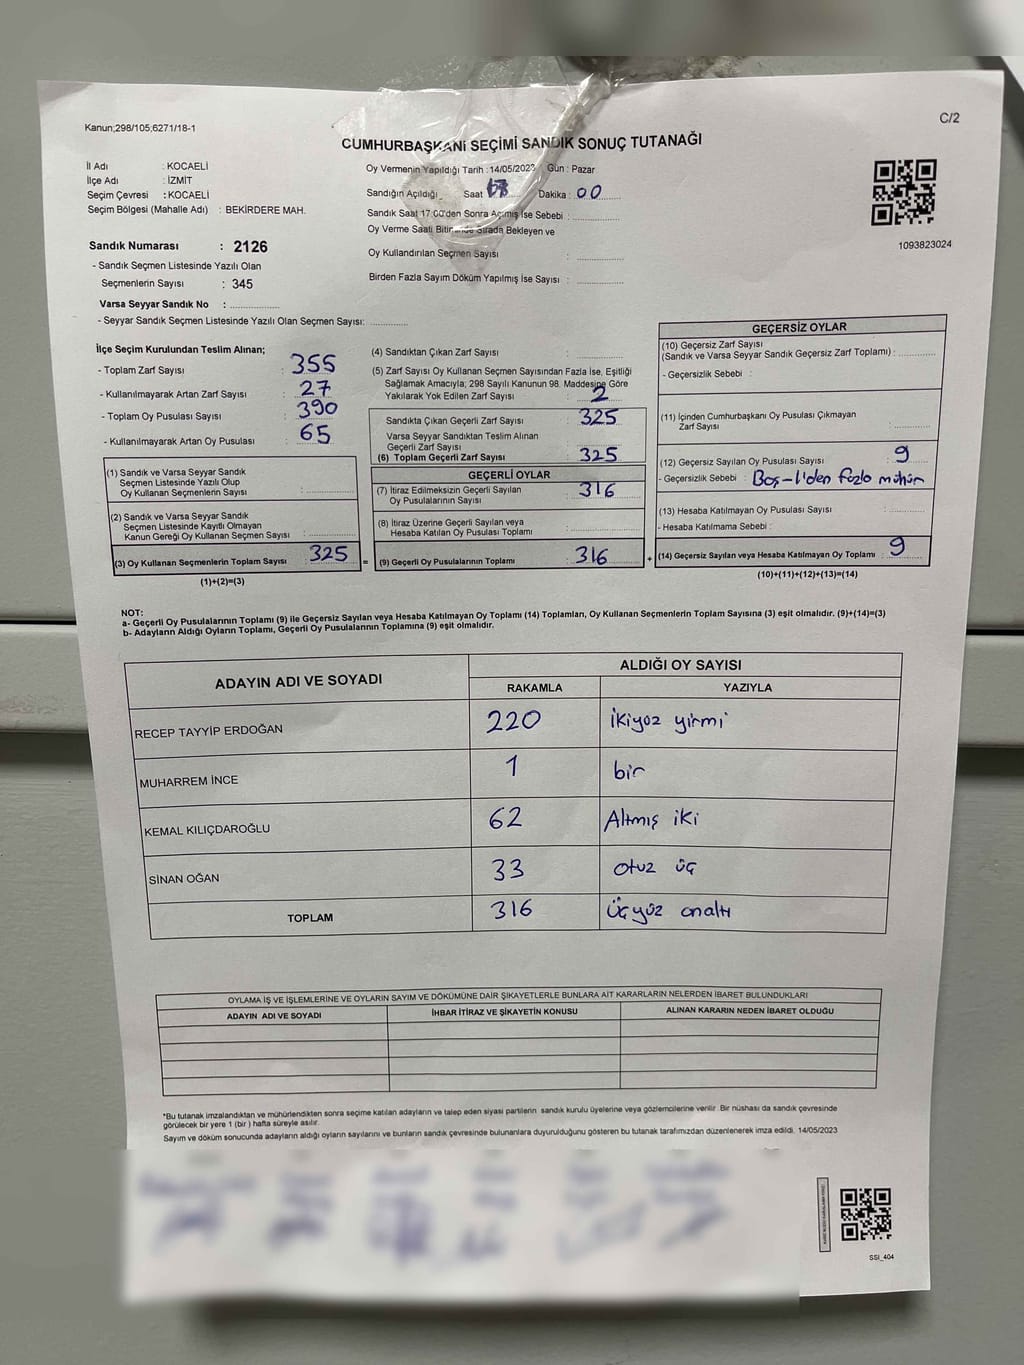 Kanun;298/105;6271/18-1
C/2
CUMHURBAŞKANI SEÇİMİ SANDIK SONUÇ TUTANAĞI
İl Adı : KOCAELİ
İlçe Adı : İZMİT
Seçim Çevresi : KOCAELİ
Seçim Bölgesi (Mahalle Adı) : BEKİRDERE MAH.
Sandık Numarası : 2126
- Sandık Seçmen Listesinde Yazılı Olan
Seçmenlerin Sayısı : 345
Varsa Seyyar Sandık No : ..............
- Seyyar Sandık Seçmen Listesinde Yazılı Olan Seçmen Sayısı: ............
Oy Vermenin Yapıldığı Tarih : 14/05/2023 Gün : Pazar
Sandığın Açıldığı Saat Dakika : 00
Sandık Saat 17:00'den Sonra Açılmış İse Sebebi : ..............
Oy Verme Saati Bitiminde Sırada Bekleyen ve
Oy Kullandırılan Seçmen Sayısı : ..............
Birden Fazla Sayım Döküm Yapılmış İse Sayısı : ..............
1093823024
İlçe Seçim Kurulundan Teslim Alınan;
- Toplam Zarf Sayısı : 355
- Kullanılmayarak Artan Zarf Sayısı : 27
- Toplam Oy Pusulası Sayısı : 390
- Kullanılmayarak Artan Oy Pusulası : 65
(1) Sandık ve Varsa Seyyar Sandık
Seçmen Listesinde Yazılı Olup
Oy Kullanan Seçmenlerin Sayısı : ..............
(2) Sandık ve Varsa Seyyar Sandık
Seçmen Listesinde Kayıtlı Olmayan
Kanun Gereği Oy Kullanan Seçmen Sayısı : ..............
(3) Oy Kullanan Seçmenlerin Toplam Sayısı : 325
(1)+(2)=(3)
(4) Sandıktan Çıkan Zarf Sayısı : ..............
(5) Zarf Sayısı Oy Kullanan Seçmen Sayısından Fazla İse, Eşitliği
Sağlamak Amacıyla; 298 Sayılı Kanunun 98. Maddesine Göre
Yakılarak Yok Edilen Zarf Sayısı : 2
Sandıkta Çıkan Geçerli Zarf Sayısı : 325
Varsa Seyyar Sandıktan Teslim Alınan
Geçerli Zarf Sayısı : ..............
(6) Toplam Geçerli Zarf Sayısı : 325
GEÇERLİ OYLAR
(7) İtiraz Edilmeksizin Geçerli Sayılan
Oy Pusulalarının Sayısı : 316
(8) İtiraz Üzerine Geçerli Sayılan veya
Hesaba Katılan Oy Pusulası Toplamı : ..............
= (9) Geçerli Oy Pusulalarının Toplamı : 316 +
GEÇERSİZ OYLAR
(10) Geçersiz Zarf Sayısı
(Sandık ve Varsa Seyyar Sandık Geçersiz Zarf Toplamı) : ............
- Geçersizlik Sebebi :
(11) İçinden Cumhurbaşkanı Oy Pusulası Çıkmayan
Zarf Sayısı : ............
(12) Geçersiz Sayılan Oy Pusulası Sayısı : 9
- Geçersizlik Sebebi : Boş-1'den fazla mühür
(13) Hesaba Katılmayan Oy Pusulası Sayısı : ............
- Hesaba Katılmama Sebebi :
(14) Geçersiz Sayılan veya Hesaba Katılmayan Oy Toplamı : 9
(10)+(11)+(12)+(13)=(14)
NOT:
a- Geçerli Oy Pusulalarının Toplamı (9) ile Geçersiz Sayılan veya Hesaba Katılmayan Oy Toplamı (14) Toplamları, Oy Kullanan Seçmenlerin Toplam Sayısına (3) eşit olmalıdır. (9)+(14)=(3)
b- Adayların Aldığı Oyların Toplamı, Geçerli Oy Pusulalarının Toplamına (9) eşit olmalıdır.
ADAYIN ADI VE SOYADI
ALDIĞI OY SAYISI
RAKAMLA YAZIYLA
RECEP TAYYİP ERDOĞAN 220 İkiyüz yirmi
MUHARREM İNCE 1 bir
KEMAL KILIÇDAROĞLU 62 Altmış iki
SİNAN OĞAN 33 otuz üç
TOPLAM 316 Üçyüz onaltı
OYLAMA İŞ VE İŞLEMLERİNE VE OYLARIN SAYIM VE DÖKÜMÜNE DAİR ŞİKAYETLERLE BUNLARA AİT KARARLARIN NELERDEN İBARET BULUNDUKLARI
ADAYIN ADI VE SOYADI İHBAR İTİRAZ VE ŞİKAYETİN KONUSU ALINAN KARARIN NEDEN İBARET OLDUĞU
*Bu tutanak imzalandıktan ve mühürlendikten sonra seçime katılan adayların ve talep eden siyasi partilerin sandık kurulu üyelerine veya gözlemcilerine verilir. Bir nüshası da sandık çevresinde
görülecek bir yere 1 (bir ) hafta süreyle asılır.
Sayım ve döküm sonucunda adayların aldığı oyların sayılarını ve bunların sandık çevresinde bulunanlara duyurulduğunu gösteren bu tutanak tarafımızdan düzenlenerek imza edildi. 14/05/2023
SSI_404